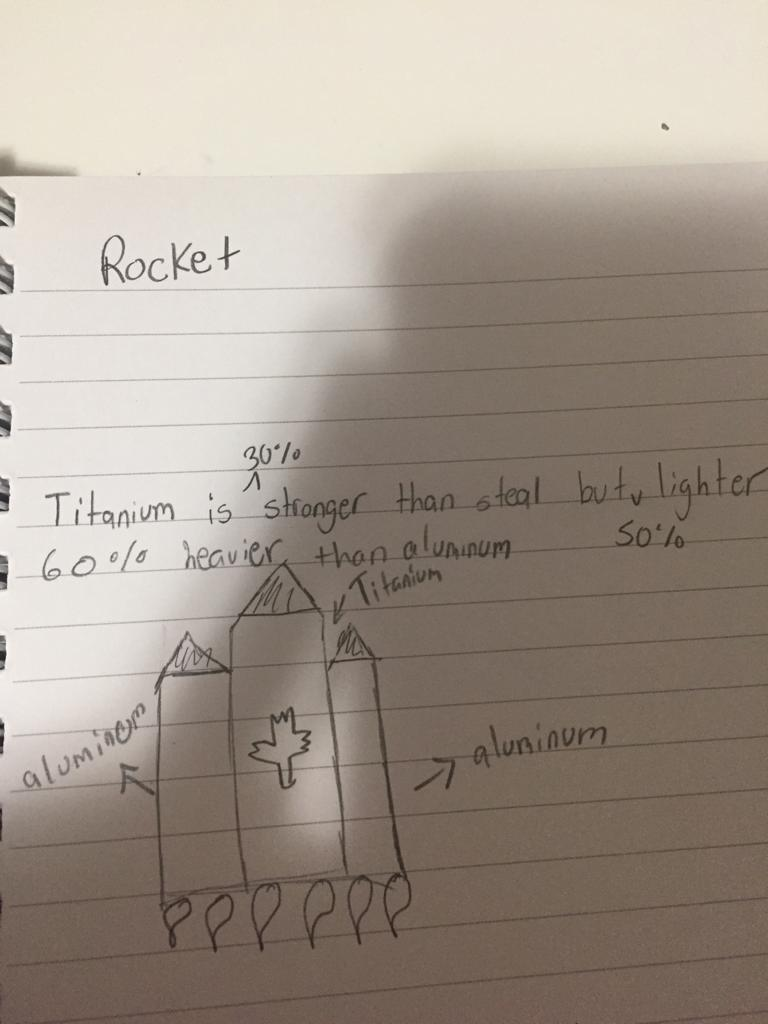 Rocket
30%
Titanium is stronger than steal but lighter
50%
60% heavier than aluminum
Titanium
aluminum
aluminum